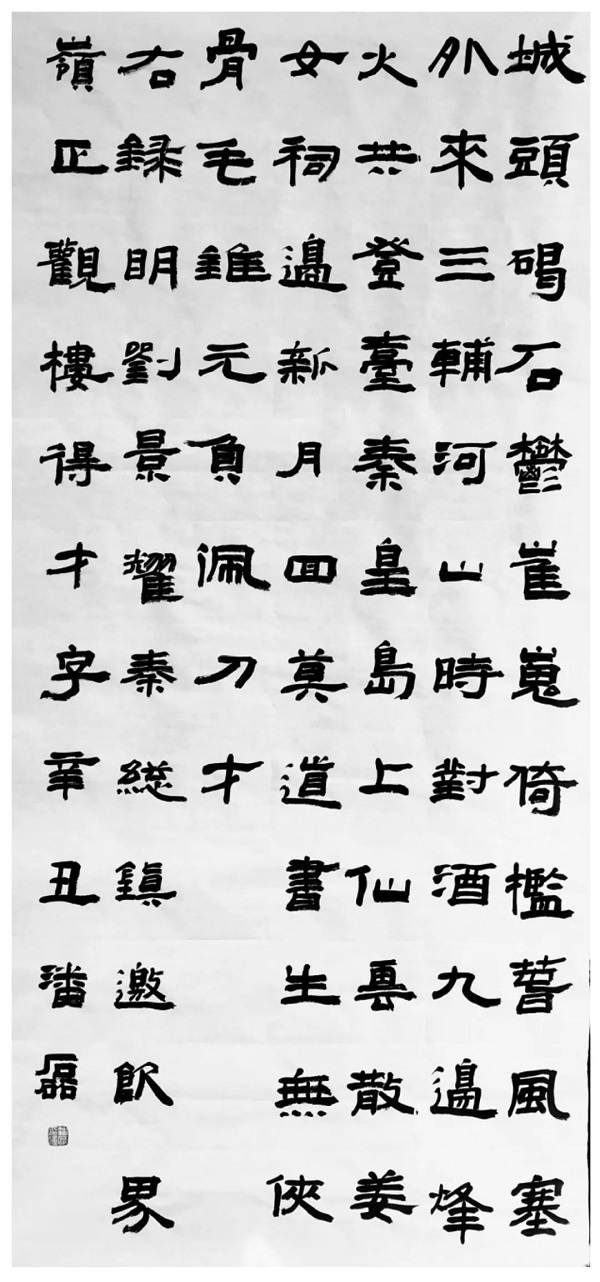 城頭碣石鬱崔嵬倚檻警風塞
外來三輔河山時對酒九邊烽
火共登臺秦皇島上仙雲散姜
女祠邊新月回莫道書生無俠
骨毛錐元負佩刀才
右録明劉景耀秦總鎮邀飲界
嶺正觀樓得才字辛丑潘磊